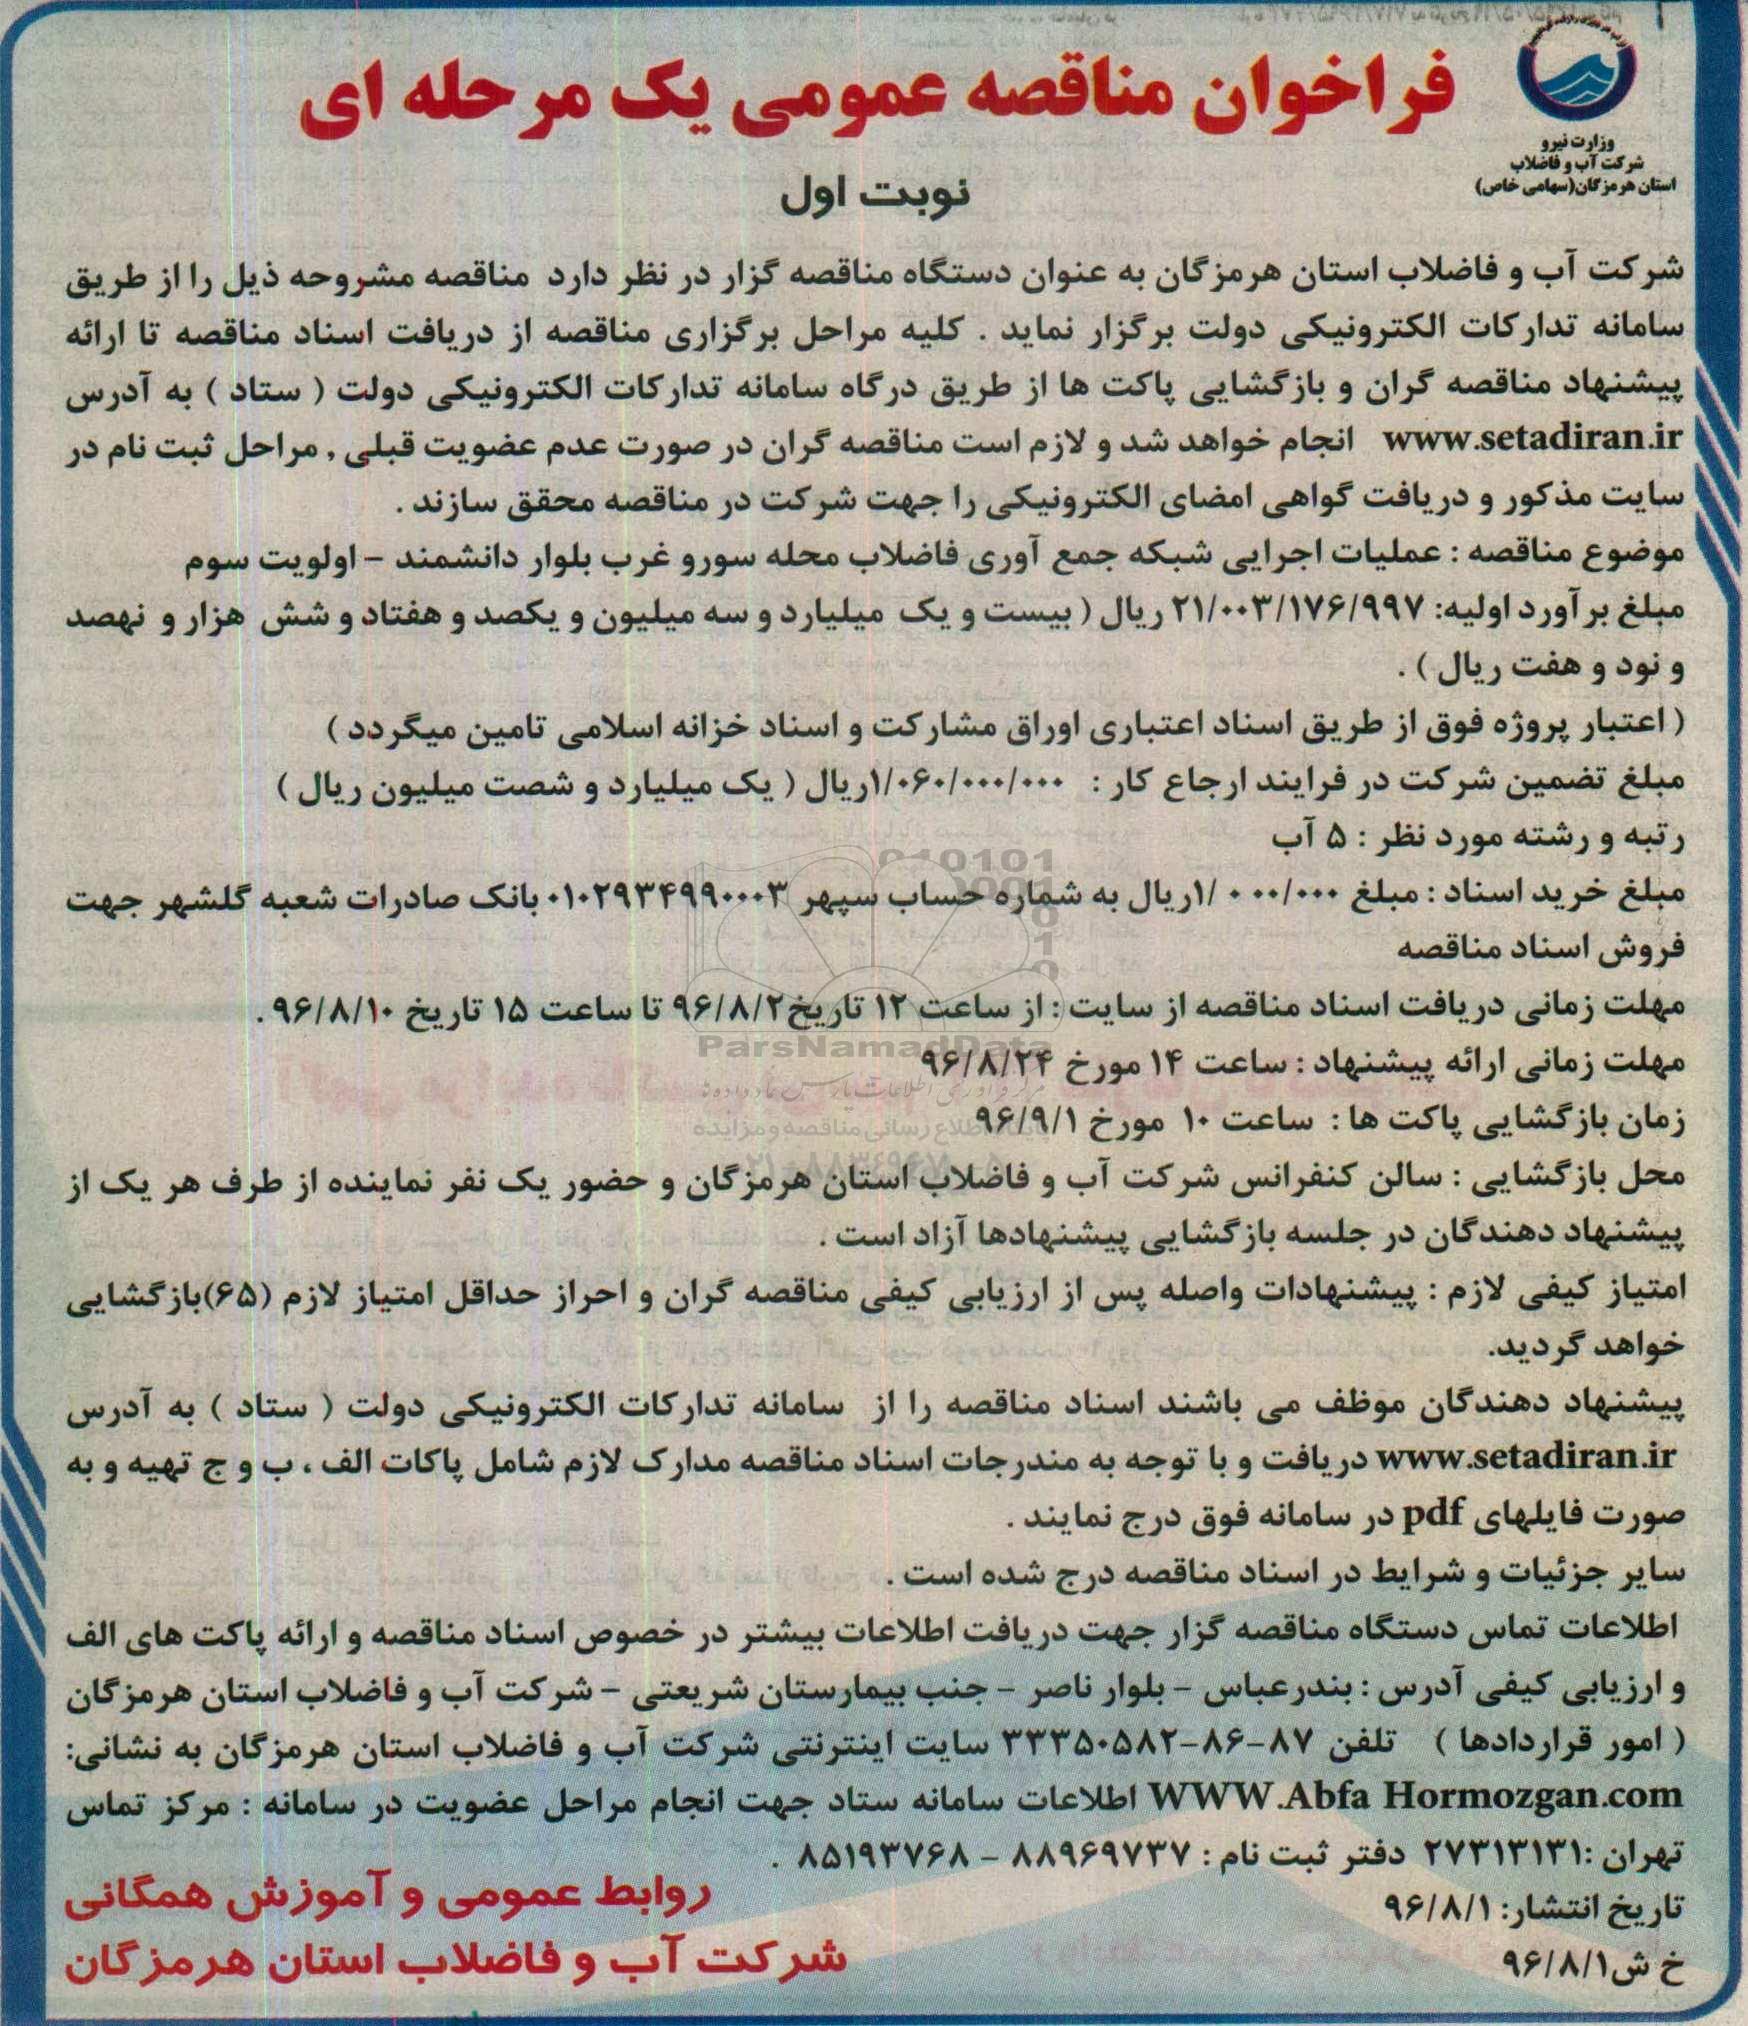 وزارت نیرو
شرکت آب و فاضلاب
استان هرمزگان(سهامی خاص)
فراخوان مناقصه عمومی یک مرحله ای
نوبت اول
شرکت آب و فاضلاب استان هرمزگان به عنوان دستگاه مناقصه گزار در نظر دارد مناقصه مشروحه ذیل را از طریق
سامانه تدارکات الکترونیکی دولت برگزار نماید . کلیه مراحل برگزاری مناقصه از دریافت اسناد مناقصه تا ارائه
پیشنهاد مناقصه گران و بازگشایی پاکت ها از طریق درگاه سامانه تدارکات الکترونیکی دولت ( ستاد ) به آدرس
www.setadiran.ir انجام خواهد شد و لازم است مناقصه گران در صورت عدم عضویت قبلی , مراحل ثبت نام در
سایت مذکور و دریافت گواهی امضای الکترونیکی را جهت شرکت در مناقصه محقق سازند .
موضوع مناقصه : عملیات اجرایی شبکه جمع آوری فاضلاب محله سورو غرب بلوار دانشمند - اولویت سوم
مبلغ برآورد اولیه: ۲۱/۰۰۳/۱۷۶/۹۹۷ ریال ( بیست و یک میلیارد و سه میلیون و یکصد و هفتاد و شش هزار و نهصد
و نود و هفت ریال ) .
( اعتبار پروژه فوق از طریق اسناد اعتباری اوراق مشارکت و اسناد خزانه اسلامی تامین میگردد )
مبلغ تضمین شرکت در فرایند ارجاع کار : ۱/۰۶۰/۰۰۰/۰۰۰ریال ( یک میلیارد و شصت میلیون ریال )
رتبه و رشته مورد نظر : ۵ آب
مبلغ خرید اسناد : مبلغ ۱/۰۰۰/۰۰۰ریال به شماره حساب سپهر ۰۱۰۲۹۳۴۹۹۰۰۰۳ بانک صادرات شعبه گلشهر جهت
فروش اسناد مناقصه
مهلت زمانی دریافت اسناد مناقصه از سایت : از ساعت ۱۲ تاریخ۹۶/۸/۲ تا ساعت ۱۵ تاریخ ۹۶/۸/۱۰ .
ParsNamadData
مهلت زمانی ارائه پیشنهاد : ساعت ۱۴ مورخ ۹۶/۸/۲۴
زمان بازگشایی پاکت ها : ساعت ۱۰ مورخ ۹۶/۹/۱
محل بازگشایی : سالن کنفرانس شرکت آب و فاضلاب استان هرمزگان و حضور یک نفر نماینده از طرف هر یک از
پیشنهاد دهندگان در جلسه بازگشایی پیشنهادها آزاد است .
امتیاز کیفی لازم : پیشنهادات واصله پس از ارزیابی کیفی مناقصه گران و احراز حداقل امتیاز لازم (۶۵)بازگشایی
خواهد گردید.
پیشنهاد دهندگان موظف می باشند اسناد مناقصه را از سامانه تدارکات الکترونیکی دولت ( ستاد ) به آدرس
www.setadiran.ir دریافت و با توجه به مندرجات اسناد مناقصه مدارک لازم شامل پاکات الف ، ب و ج تهیه و به
صورت فایلهای pdf در سامانه فوق درج نمایند .
سایر جزئیات و شرایط در اسناد مناقصه درج شده است .
اطلاعات تماس دستگاه مناقصه گزار جهت دریافت اطلاعات بیشتر در خصوص اسناد مناقصه و ارائه پاکت های الف
و ارزیابی کیفی آدرس : بندرعباس - بلوار ناصر - جنب بیمارستان شریعتی - شرکت آب و فاضلاب استان هرمزگان
( امور قراردادها ) تلفن ۸۷-۸۶-۳۳۳۵۰۵۸۲ سایت اینترنتی شرکت آب و فاضلاب استان هرمزگان به نشانی:
WWW.Abfa Hormozgan.com اطلاعات سامانه ستاد جهت انجام مراحل عضویت در سامانه : مرکز تماس
تهران :۲۷۳۱۳۱۳۱ دفتر ثبت نام : ۸۸۹۶۹۷۳۷ - ۸۵۱۹۳۷۶۸ .
تاریخ انتشار: ۹۶/۸/۱
خ ش۹۶/۸/۱
روابط عمومی و آموزش همگانی
شرکت آب و فاضلاب استان هرمزگان